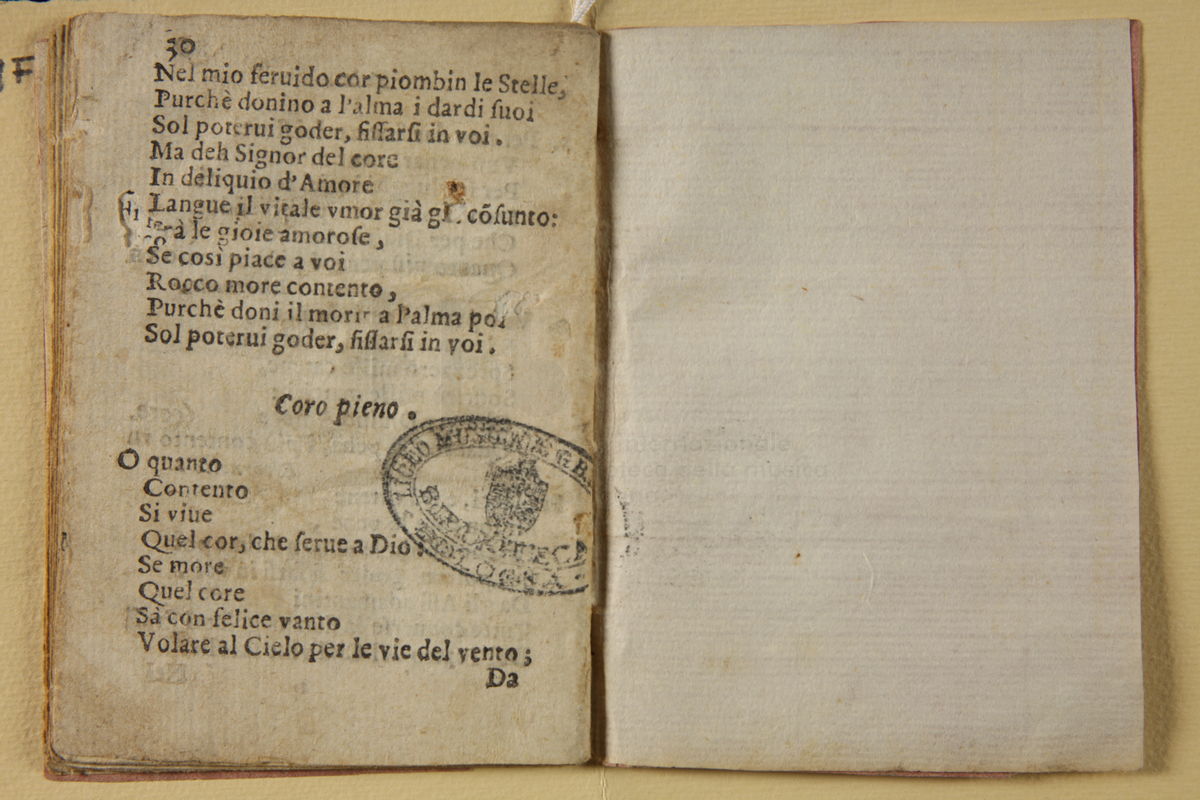 30
Nel mio feruido cor piombin le Stelle,
Purchè donino a l'alma i dardi ſuoi
Sol poterui goder, fiſſarſi in voi.
Ma deh Signor del core
In deliquio d'Amore
Langue il vitale vmor già cõſunto:
le gioie amoroſe,
Se così piace a voi
Rocco more contento,
Purchè doni il morir a l'alma poi
Sol poterui goder, fiſſarſi in voi.
Coro pieno.
O quanto
Contento
Si viue
Quel cor, che ſerue a Dio:
Se more
Quel core
Sà con felice vanto
Volare al Cielo per le vie del vento;
Da
LICEO MUSICALE G.B.
BIBLIOTECA
BOLOGNA